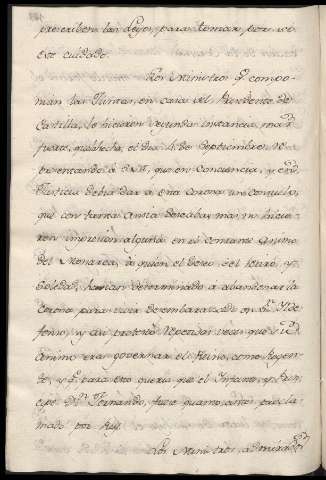 prescriben las Leyes, para tomar, por si
este cuidado.
Los Ministros q.e compo-
nian las Juntas, en casa del Presidente de
Castilla, le hicieron segunda instancia, mas
fuerte, que la hecha, el dia 4 de Septiembre, re-
presentando à S.M. que en Conciencia, y en
Justicia debia dar a esta Corona un consuelo,
que con tanta Ansia deseaba; mas no hicie-
ron impresion alguna en el constante Animo
del Monarca, à quien el deseo del retiro, y
Soledad, havian determinado a abandonar la
Corona para vivir desembarazado en S.n Ylde-
fonso, y asi protestò repetidas veces que su R.l
Animo era governar el Reino, como Regen-
te, y q.e para esto queria que el Infante, y Prin-
cipe D.n Fernando, fuese quanto antes procla-
mado por Rey.
Los Ministros admirados